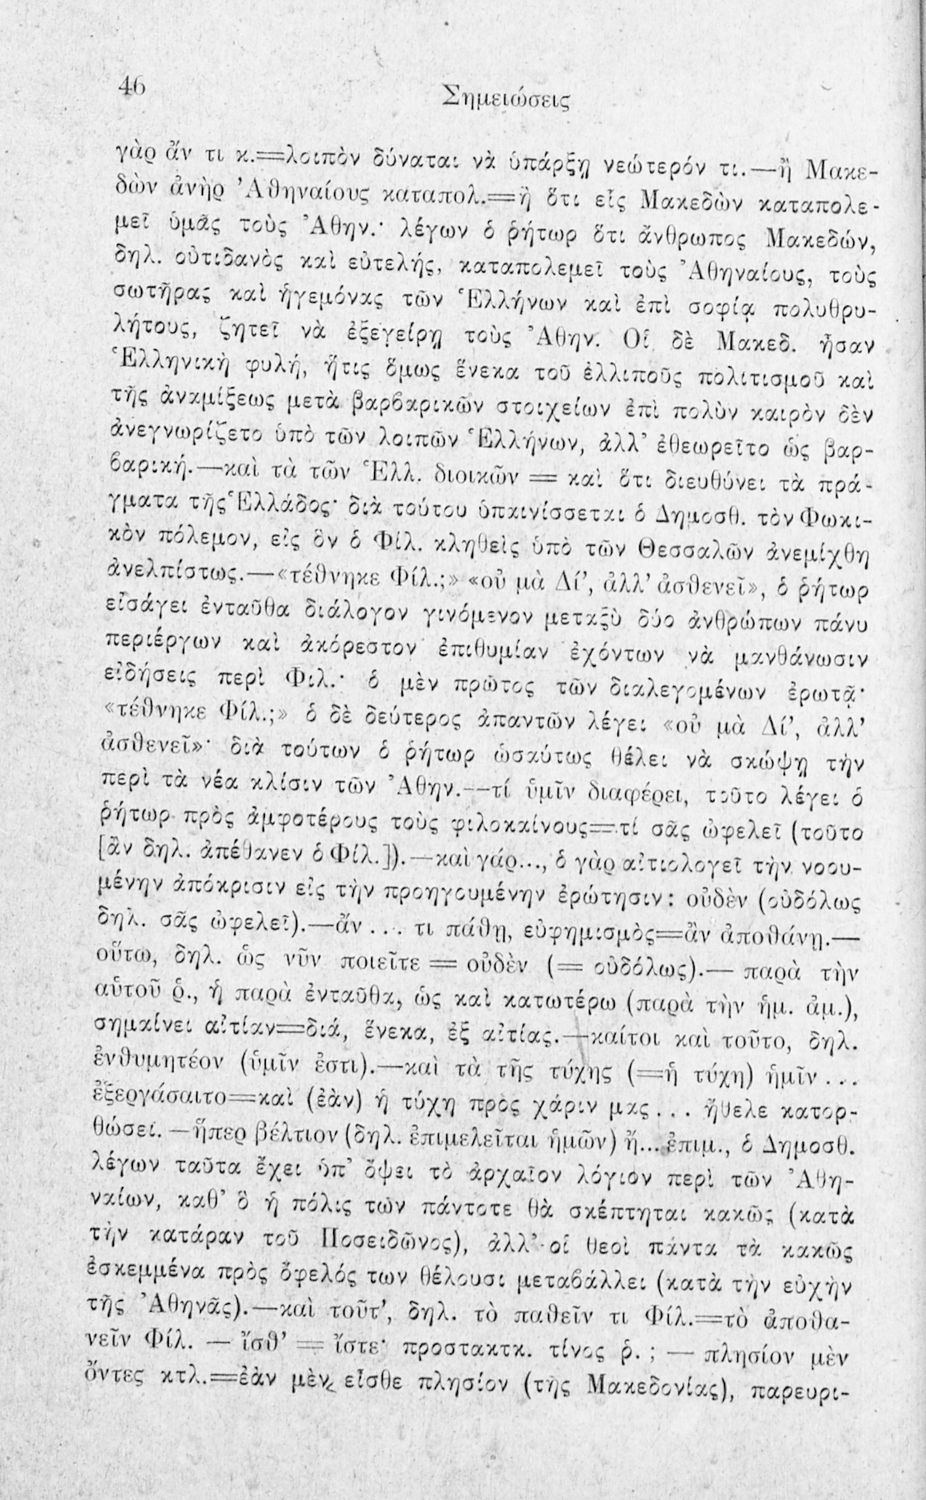 46
Σημειώσεις
γὰρ ἄν τι κ.=λοιπὸν δύναται νὰ ὑπάρξῃ νεώτερόν τι.—ἢ Μακε-
δὼν ἀνὴρ Ἀθηναίους καταπολ.=ἢ ὅτι εἷς Μακεδὼν καταπολε-
μεῖ ὑμᾶς τοὺς Ἀθην.· λέγων ὁ ῥήτωρ ὅτι ἄνθρωπος Μακεδών,
δηλ. οὐτιδανὸς καὶ εὐτελής, καταπολεμεῖ τοὺς Ἀθηναίους, τοὺς
σωτῆρας καὶ ἡγεμόνας τῶν Ἑλλήνων καὶ ἐπὶ σοφίᾳ πολυθρυ-
λήτους, ζητεῖ νὰ ἐξεγείρῃ τοὺς Ἀθην. Οἱ δὲ Μακεδ. ἦσαν
Ἑλληνικὴ φυλή, ἥτις ὅμως ἕνεκα τοῦ ἐλλιποῦς πολιτισμοῦ καὶ
τῆς ἀναμίξεως μετὰ βαρβαρικῶν στοιχείων ἐπὶ πολὺν καιρὸν δὲν
ἀνεγνωρίζετο ὑπὸ τῶν λοιπῶν Ἑλλήνων, ἀλλ’ ἐθεωρεῖτο ὡς βαρ-
βαρική.—καὶ τὰ τῶν Ἑλλ. διοικῶν = καὶ ὅτι διευθύνει τὰ πρά-
γματα τῆς Ἑλλάδος· διὰ τούτου ὑπαινίσσεται ὁ Δημοσθ. τὸν Φωκι-
κὸν πόλεμον, εἰς ὃν ὁ Φίλ. κληθεὶς ὑπὸ τῶν Θεσσαλῶν ἀνεμίχθη
ἀνελπίστως.—«τέθνηκε Φίλ.;» «οὐ μὰ Δί’, ἀλλ’ ἀσθενεῖ», ὁ ῥήτωρ
εἰσάγει ἐνταῦθα διάλογον γινόμενον μεταξὺ δύο ἀνθρώπων πάνυ
περιέργων καὶ ἀκόρεστον ἐπιθυμίαν ἐχόντων νὰ μανθάνωσιν
εἰδήσεις περὶ Φιλ.· ὁ μὲν πρῶτος τῶν διαλεγομένων ἐρωτᾷ·
«τέθνηκε Φίλ.;» ὁ δὲ δεύτερος ἀπαντῶν λέγει «οὐ μὰ Δί’, ἀλλ’
ἀσθενεῖ»· διὰ τούτων ὁ ῥήτωρ ὡσαύτως θέλει νὰ σκώψῃ τὴν
περὶ τὰ νέα κλίσιν τῶν Ἀθην.—τί ὑμῖν διαφέρει, τοῦτο λέγει ὁ
ῥήτωρ πρὸς ἀμφοτέρους τοὺς φιλοκαίνους=τί σᾶς ὠφελεῖ (τοῦτο
[ἂν δηλ. ἀπέθανεν ὁ Φίλ.]).—καὶ γάρ..., ὁ γὰρ αἰτιολογεῖ τὴν νοου-
μένην ἀπόκρισιν εἰς τὴν προηγουμένην ἐρώτησιν: οὐδὲν (οὐδόλως
δηλ. σᾶς ὠφελεῖ).—ἄν ... τι πάθῃ, εὐφημισμὸς=ἂν ἀποθάνῃ.—
οὕτω, δηλ. ὡς νῦν ποιεῖτε = οὐδὲν (= οὐδόλως).— παρὰ τὴν
αὑτοῦ ῥ., ἡ παρὰ ἐνταῦθα, ὡς καὶ κατωτέρω (παρὰ τὴν ἡμ. ἀμ.),
σημαίνει αἰτίαν=διά, ἕνεκα, ἐξ αἰτίας.—καίτοι καὶ τοῦτο, δηλ.
ἐνθυμητέον (ὑμῖν ἐστι).—καὶ τὰ τῆς τύχης (=ἡ τύχη) ἡμῖν ...
ἐξεργάσαιτο=καὶ (ἐὰν) ἡ τύχη πρὸς χάριν μας ... ἤθελε κατορ-
θώσει.—ἥπερ βέλτιον (δηλ. ἐπιμελεῖται ἡμῶν) ἢ... ἐπιμ., ὁ Δημοσθ.
λέγων ταῦτα ἔχει ὑπ’ ὄψει τὸ ἀρχαῖον λόγιον περὶ τῶν Ἀθη-
ναίων, καθ’ ὃ ἡ πόλις των πάντοτε θὰ σκέπτηται κακῶς (κατὰ
τὴν κατάραν τοῦ Ποσειδῶνος), ἀλλ’ οἱ θεοὶ πάντα τὰ κακῶς
ἐσκεμμένα πρὸς ὄφελός των θέλουσι μεταβάλλει (κατὰ τὴν εὐχὴν
τῆς Ἀθηνᾶς).—καὶ τοῦτ’, δηλ. τὸ παθεῖν τι Φίλ.=τὸ ἀποθα-
νεῖν Φίλ. — ἴσθ’ = ἴστε· προστακτκ. τίνος ῥ. ; — πλησίον μὲν
ὄντες κτλ.=ἐὰν μὲν εἶσθε πλησίον (τῆς Μακεδονίας), παρευρι-